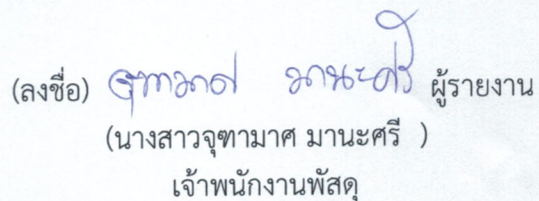 (ลงชื่อ) จุฑามาศ มานะศรี ผู้รายงาน
(นางสาวจุฑามาศ มานะศรี )
เจ้าพนักงานพัสดุ